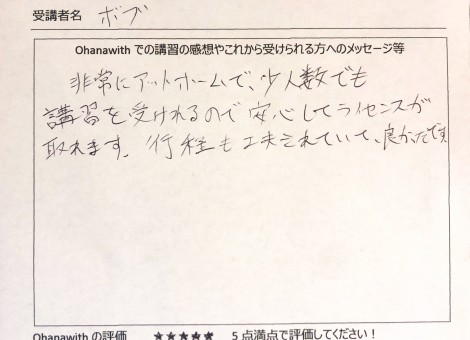 受講者名 ボブ
Ohanawith での講習の感想やこれから受けられる方へのメッセージ等
非常にアットホームで、少人数でも
講習を受けれるので安心してライセンスが
取れます。行程も工夫されていて、良かったです。
Ohanawith の評価 ★★★★★ 5 点満点で評価してください！